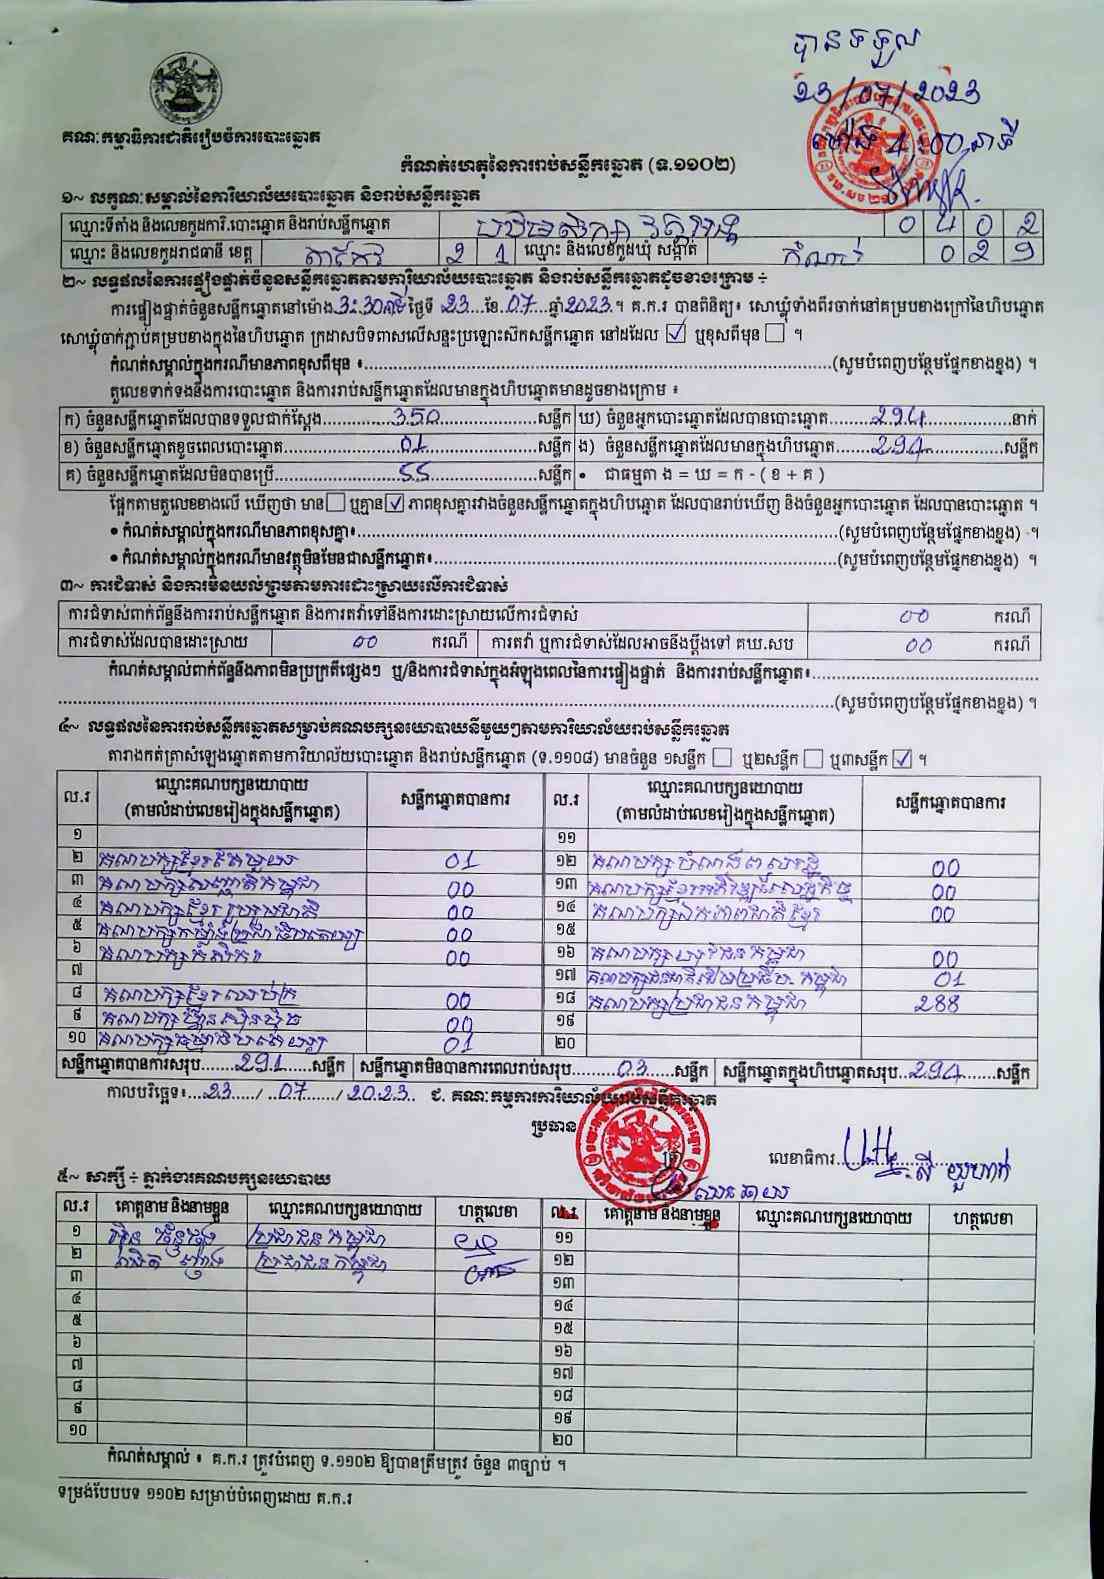 បានទទួល
23/07/2023
ម៉ោង 4:00 នាទី
គណៈកម្មាធិការជាតិរៀបចំការបោះឆ្នោត
កំណត់ហេតុនៃការរាប់សន្លឹកឆ្នោត (ទ.១១០២)
១~ លក្ខណៈសម្គាល់នៃការិយាល័យបោះឆ្នោត និងរាប់សន្លឹកឆ្នោត
ឈ្មោះទីតាំង និងលេខកូដការិ.បោះឆ្នោត និងរាប់សន្លឹកឆ្នោត បឋមសិក្សា 0402
ឈ្មោះ និងលេខកូដរាជធានី ខេត្ត តាកែវ 21 ឈ្មោះ និងលេខកូដឃុំ សង្កាត់ កំណប់ 029
២~ លទ្ធផលនៃការផ្ទៀងផ្ទាត់ចំនួនសន្លឹកឆ្នោតតាមការិយាល័យបោះឆ្នោត និងរាប់សន្លឹកឆ្នោតដូចខាងក្រោម ÷
ការផ្ទៀងផ្ទាត់ចំនួនសន្លឹកឆ្នោតនៅម៉ោង 3:30នាទី ថ្ងៃទី 23 ខែ 07 ឆ្នាំ 2023 ។ គ.ក.រ បានពិនិត្យ៖ សោឃ្លុំទាំងពីរចាក់នៅគម្របខាងក្រៅនៃហិបឆ្នោត
សោឃ្លុំចាក់ភ្ជាប់គម្របខាងក្នុងនៃហិបឆ្នោត ក្រដាសបិទពាសលើសន្ទះប្រឡោះស៊កសន្លឹកឆ្នោត នៅដដែល ☑ ឬខុសពីមុន ☐ ។
កំណត់សម្គាល់ក្នុងករណីមានភាពខុសពីមុន ៖ (សូមបំពេញបន្ថែមផ្នែកខាងខ្នង) ។
តួលេខទាក់ទងនឹងការបោះឆ្នោត និងការរាប់សន្លឹកឆ្នោតដែលមានក្នុងហិបឆ្នោតមានដូចខាងក្រោម ៖
ក) ចំនួនសន្លឹកឆ្នោតដែលបានទទួលជាក់ស្តែង 350 សន្លឹក ឃ) ចំនួនអ្នកបោះឆ្នោតដែលបានបោះឆ្នោត 294 នាក់
ខ) ចំនួនសន្លឹកឆ្នោតខូចពេលបោះឆ្នោត 01 សន្លឹក ង) ចំនួនសន្លឹកឆ្នោតដែលមានក្នុងហិបឆ្នោត 294 សន្លឹក
គ) ចំនួនសន្លឹកឆ្នោតដែលមិនបានប្រើ 55 សន្លឹក • ជាធម្មតា ង = ឃ = ក - ( ខ + គ )
ផ្អែកតាមតួលេខខាងលើ ឃើញថា មាន ☐ ឬគ្មាន ☑ ភាពខុសគ្នារវាងចំនួនសន្លឹកឆ្នោតក្នុងហិបឆ្នោត ដែលបានរាប់ឃើញ និងចំនួនអ្នកបោះឆ្នោត ដែលបានបោះឆ្នោត ។
• កំណត់សម្គាល់ក្នុងករណីមានភាពខុសគ្នា៖ (សូមបំពេញបន្ថែមផ្នែកខាងខ្នង) ។
• កំណត់សម្គាល់ក្នុងករណីមានវត្ថុមិនមែនជាសន្លឹកឆ្នោត៖ (សូមបំពេញបន្ថែមផ្នែកខាងខ្នង) ។
៣~ ការជំទាស់ និងការមិនយល់ព្រមតាមការដោះស្រាយលើការជំទាស់
ការជំទាស់ពាក់ព័ន្ធនឹងការរាប់សន្លឹកឆ្នោត និងការតវ៉ាទៅនឹងការដោះស្រាយលើការជំទាស់ 00 ករណី
ការជំទាស់ដែលបានដោះស្រាយ 00 ករណី ការតវ៉ា ឬការជំទាស់ដែលអាចនឹងប្តឹងទៅ គឃ.សប 00 ករណី
កំណត់សម្គាល់ពាក់ព័ន្ធនឹងភាពមិនប្រក្រតីផ្សេងៗ ឬ/និងការជំទាស់ក្នុងអំឡុងពេលនៃការផ្ទៀងផ្ទាត់ និងការរាប់សន្លឹកឆ្នោត៖
(សូមបំពេញបន្ថែមផ្នែកខាងខ្នង) ។
៤~ លទ្ធផលនៃការរាប់សន្លឹកឆ្នោតសម្រាប់គណបក្សនយោបាយនីមួយៗតាមការិយាល័យរាប់សន្លឹកឆ្នោត
តារាងកត់ត្រាសំឡេងឆ្នោតតាមការិយាល័យបោះឆ្នោត និងរាប់សន្លឹកឆ្នោត (ទ.១១០៨) មានចំនួន ១សន្លឹក ☐ ឬ២សន្លឹក ☐ ឬ៣សន្លឹក ☑ ។
ល.រ ឈ្មោះគណបក្សនយោបាយ (តាមលំដាប់លេខរៀងក្នុងសន្លឹកឆ្នោត) សន្លឹកឆ្នោតបានការ ល.រ ឈ្មោះគណបក្សនយោបាយ (តាមលំដាប់លេខរៀងក្នុងសន្លឹកឆ្នោត) សន្លឹកឆ្នោតបានការ
១ ១១
២ គណបក្សខ្មែរតែមួយ 01 ១២ គណបក្ស 00
៣ គណបក្សសញ្ជាតិកម្ពុជា 00 ១៣ គណបក្សខ្មែរអភិវឌ្ឍន៍សេដ្ឋកិច្ច 00
៤ គណបក្សខ្មែររួបរួមជាតិ 00 ១៤ គណបក្សឯកភាពជាតិខ្មែរ 00
៥ គណបក្សកម្លាំងប្រជាធិបតេយ្យ 00 ១៥
៦ គណបក្សកសិករ 00 ១៦ គណបក្សយុវជនកម្ពុជា 00
៧ ១៧ គណបក្សជនជាតិដើមប្រជាធិប.កម្ពុជា 01
៨ គណបក្សខ្មែរឈប់ក្រ 00 ១៨ គណបក្សប្រជាជនកម្ពុជា 288
៩ គណបក្សហ្វ៊ុនស៊ិនប៉ិច 00 ១៩
១០ គណបក្សធម្មាធិបតេយ្យ 01 ២០
សន្លឹកឆ្នោតបានការសរុប 291 សន្លឹក សន្លឹកឆ្នោតមិនបានការពេលរាប់សរុប 03 សន្លឹក សន្លឹកឆ្នោតក្នុងហិបឆ្នោតសរុប 294 សន្លឹក
កាលបរិច្ឆេទ៖ 23 / 07 / 2023 ជ. គណៈកម្មការការិយាល័យរាប់សន្លឹកឆ្នោត
ប្រធាន
លេខាធិការ
៥~ សាក្សី ÷ ភ្នាក់ងារគណបក្សនយោបាយ
ល.រ គោត្តនាម និងនាមខ្លួន ឈ្មោះគណបក្សនយោបាយ ហត្ថលេខា ល.រ គោត្តនាម និងនាមខ្លួន ឈ្មោះគណបក្សនយោបាយ ហត្ថលេខា
១ ប្រជាជនកម្ពុជា ១១
២ ប្រជាជនកម្ពុជា ១២
៣ ១៣
៤ ១៤
៥ ១៥
៦ ១៦
៧ ១៧
៨ ១៨
៩ ១៩
១០ ២០
កំណត់សម្គាល់ ៖ គ.ក.រ ត្រូវបំពេញ ទ.១១០២ ឱ្យបានត្រឹមត្រូវ ចំនួន ៣ច្បាប់ ។
ទម្រង់បែបបទ ១១០២ សម្រាប់បំពេញដោយ គ.ក.រ